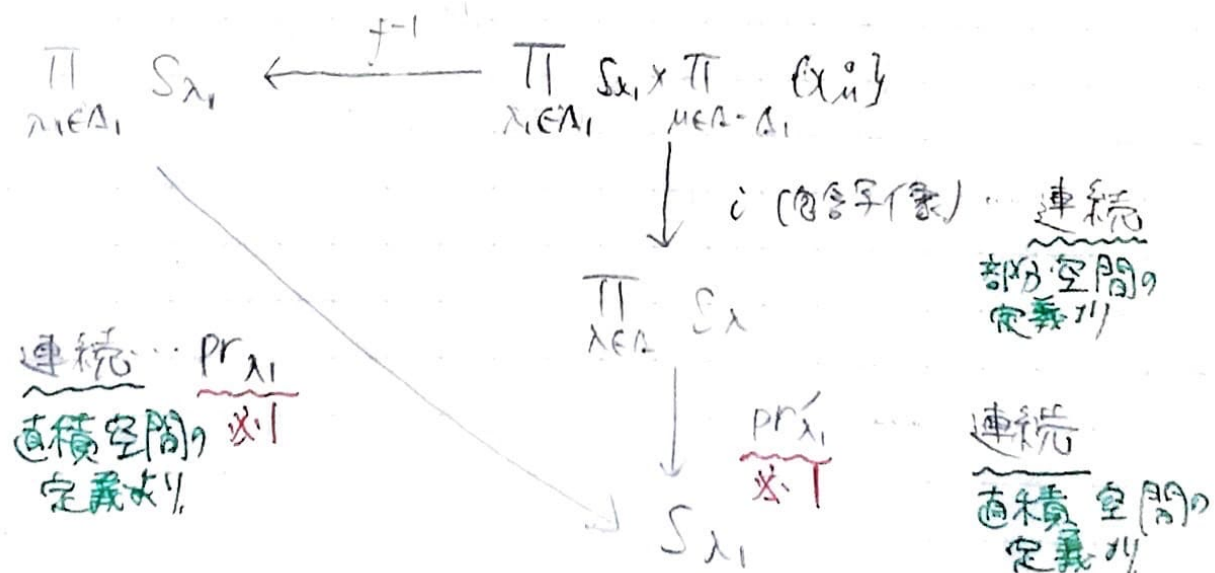 f⁻¹
∏ S_{λ₁} ← ∏ S_{λ₁} × ∏ {x_μ°}
λ₁∈Λ₁ λ₁∈Λ₁ μ∈Λ-Λ₁
i (包含写像) … 連続
部分空間の
定義より
∏ S_λ
λ∈Λ
連続 … pr_{λ₁}
※1
直積空間の
定義より
pr'_{λ₁} … 連続
※1
直積空間の
定義より
S_{λ₁}